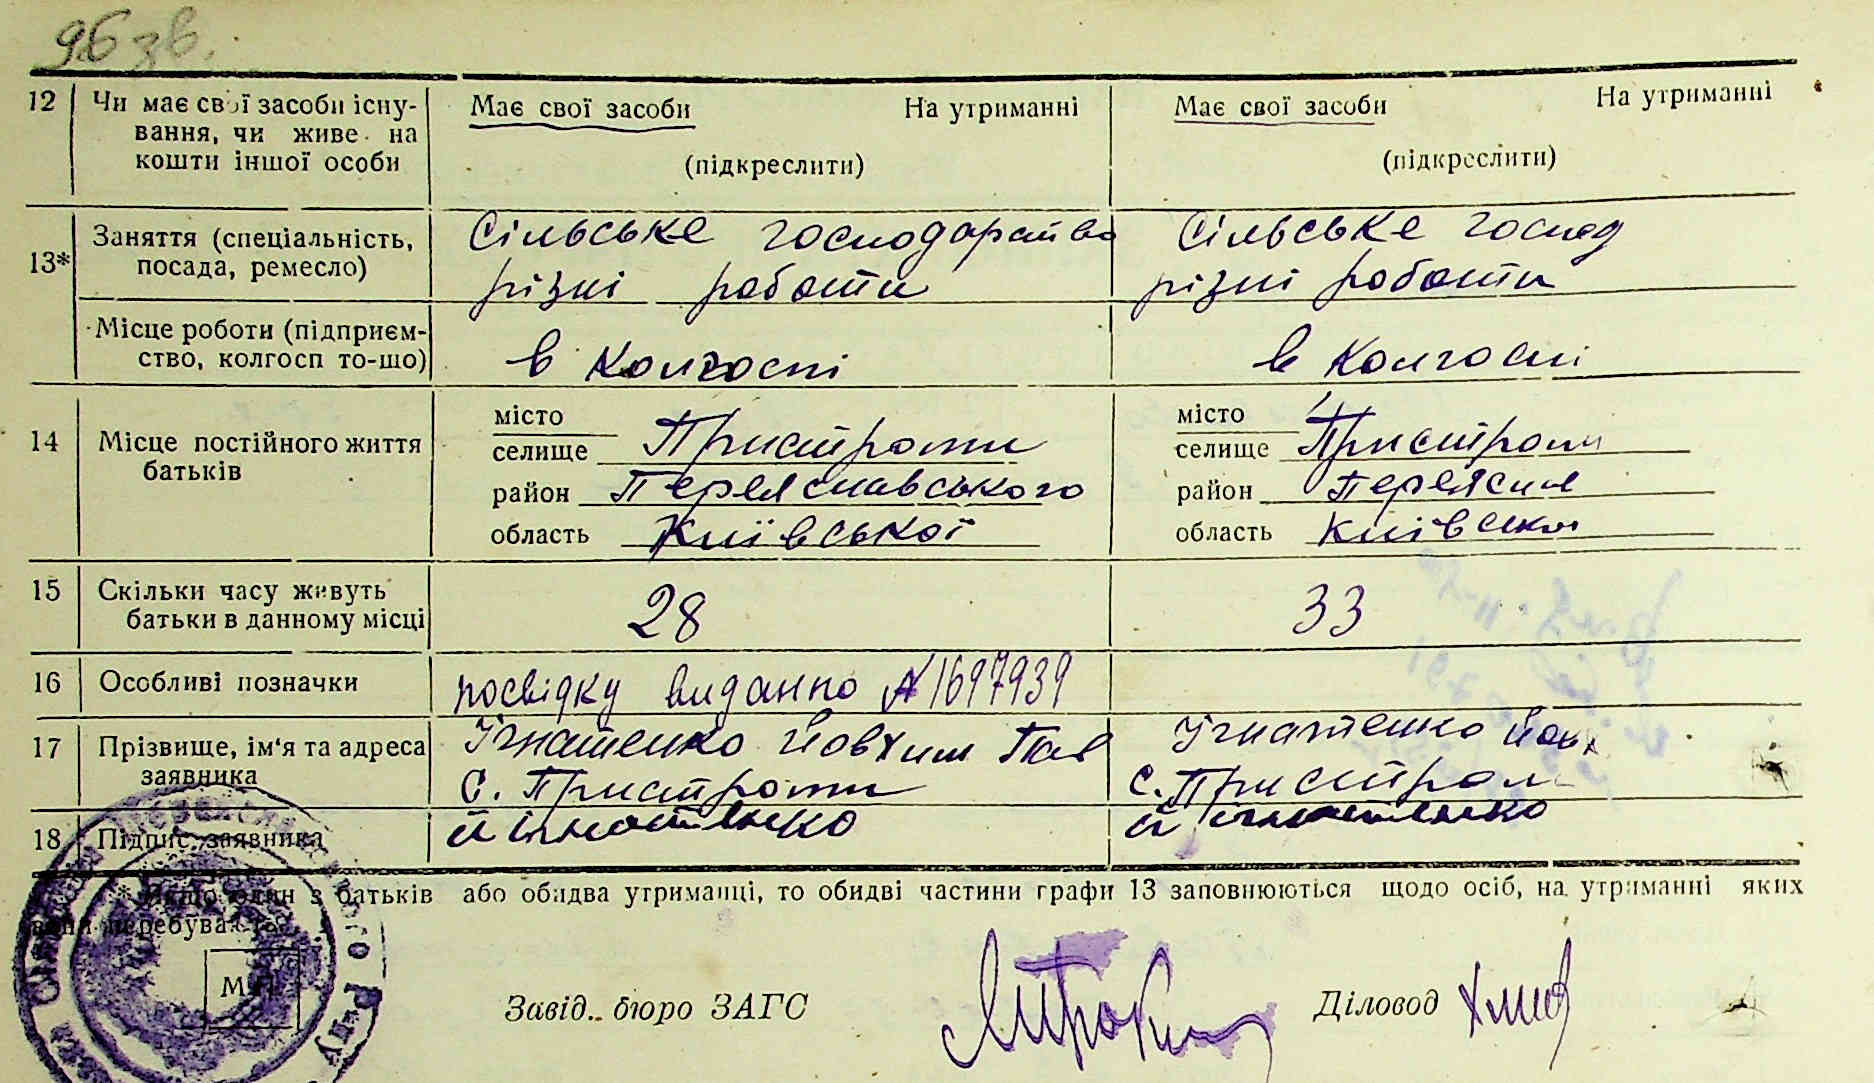 96 зв.
12 Чи має свої засоби існу- Має свої засоби На утриманні Має свої засоби На утриманні
вання, чи живе на
кошти іншої особи (підкреслити) (підкреслити)
13* Заняття (спеціальність, Сільське господарство Сільське господ
посада, ремесло) різні роботи різні роботи
Місце роботи (підприєм- в колгоспі в колгоспі
ство, колгосп то-що)
14 Місце постійного життя місто місто
батьків селище Пристроми селище Пристроми
район Переяславського район Переясла
область Київської область Київської
15 Скільки часу живуть 28 33
батьки в данному місці
16 Особливі позначки посвідку виданно № 1697939
17 Прізвище, ім'я та адреса Ігнатенко Йовхим Пав Ігнатенко Йовх
заявника с. Пристроми с. Пристром
18 Підпис заявника Й Ігнатенко Й Ігнатенко
* Якщо один з батьків або обидва утриманці, то обидві частини графи 13 заповнюються щодо осіб, на утриманні яких
вони перебувають.
М П
Завід. бюро ЗАГС Діловод